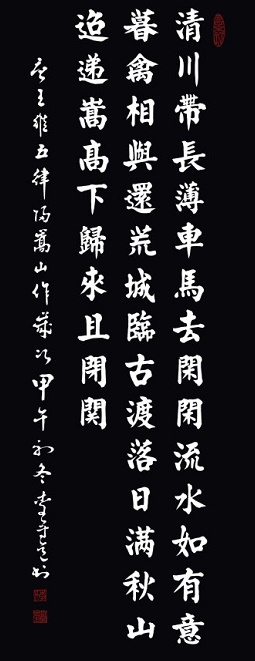 清川帶長薄車馬去閑閑流水如有意
暮禽相與還荒城臨古渡落日满秋山
迢递嵩高下歸來且閉関
唐王維五律歸嵩山作歲次甲午初冬